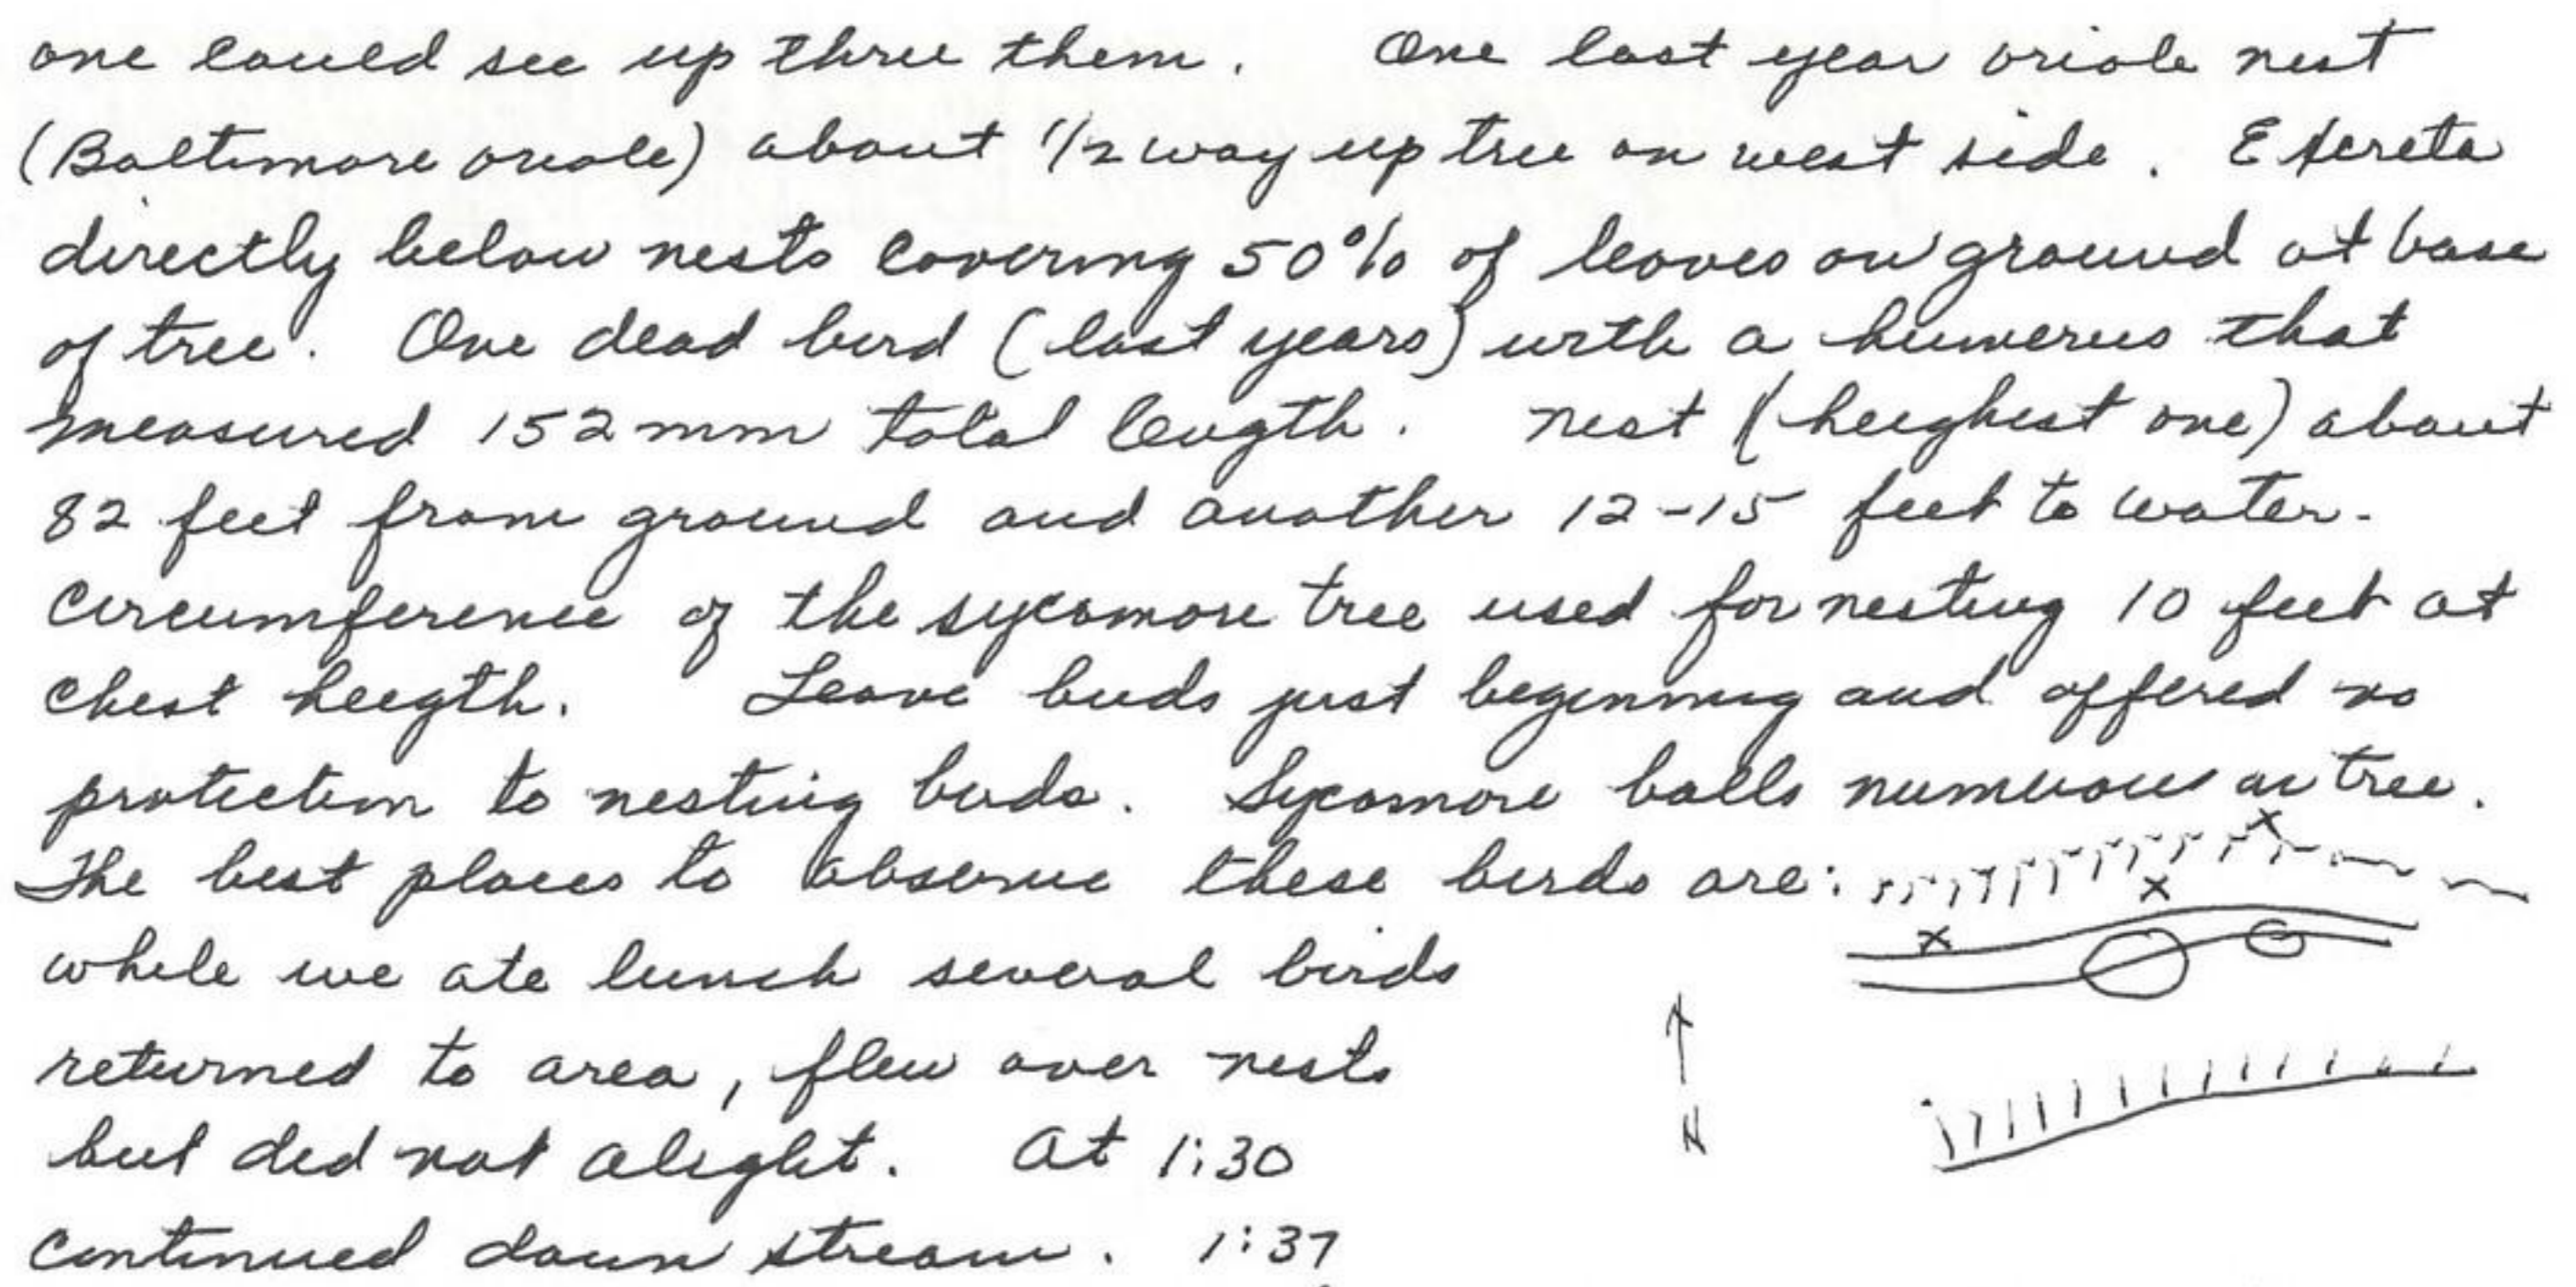 one could see up three them. One last year oriole nest
(Baltimore oriole) about 1/2 way up tree on west side. Exereta
directly below nests covering 50% of leaves on ground at base
of tree. One dead bird (last years) with a humerus that
measured 152 mm total length. nest (heighest one) about
82 feet from ground and another 12-15 feet to water.
Circumference of the sycamore tree used for nesting 10 feet at
chest heigth. Leave buds just beginning and offered no
protection to nesting birds. Sycamore balls numerous on tree.
The best places to observe these birds are:
while we ate lunch several birds
returned to area, flew over nests
but did not alight. At 1:30
continued down stream. 1:37
N